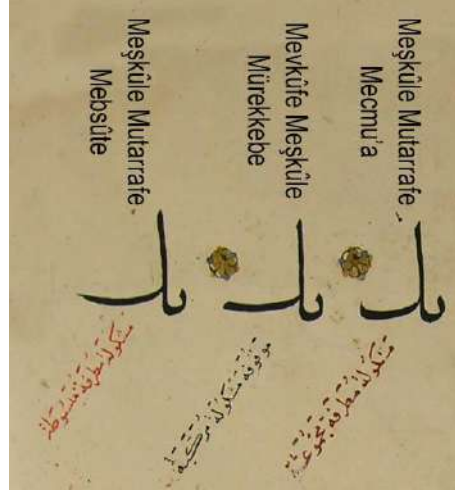 Meşkûle Mutarrafe
Mecmu'a
Mevkûfe Meşkûle
Mürekkebe
Meşkûle Mutarrafe
Mebsûte
مشكولة مطرفة مجموعة
موقوفة مشكولة مركبة
مشكولة مطرفة مبسوطة